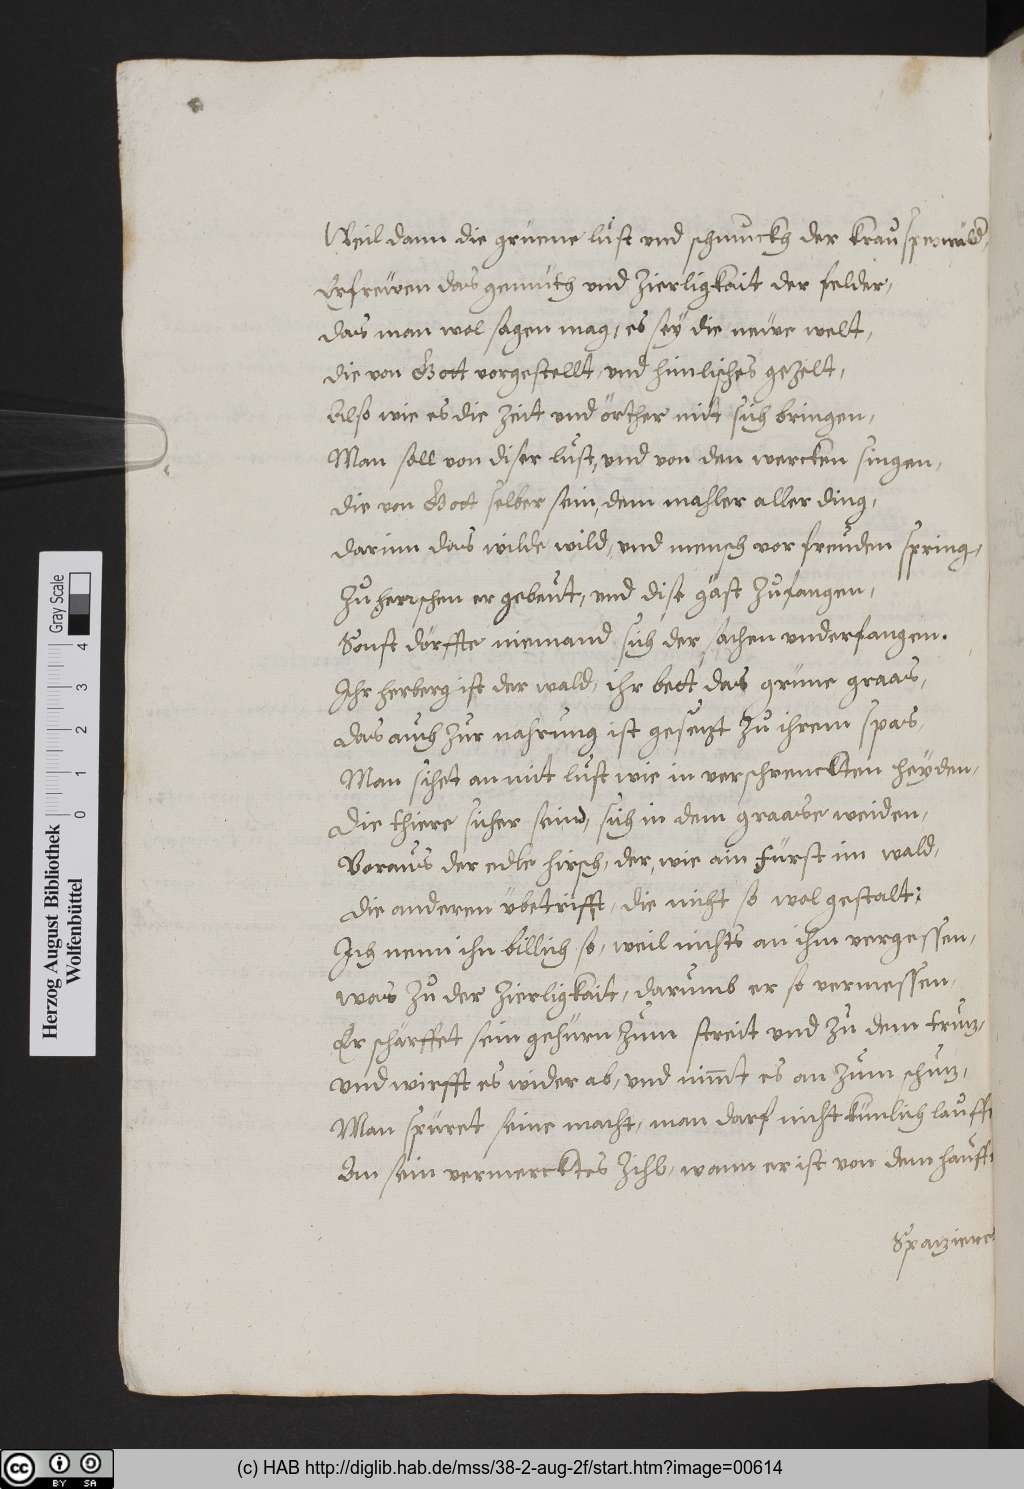 Weil dann die gruene lust und schmuckh der krauspenwäld,
Erfreiwen das gemuth und Zierligkait der felder,
das man wol sagen mag, es seÿ die neiwe welt,
die von Gott vorgestellt, und himlisches gezelt,
Also wie es die Zeit und örther mit sich bringen,
Man soll von diser lust, und von den wercken singen,
die von Gott selber sein, dem mahler aller ding,
darinn das wilde wild, und mensch vor freuden spring,
Zu herrschen er gebeut, und dise gäst Zufangen,
Sonst dörffte niemand sich der sachen underfangen.
Ihr herberg ist der wald, ihr bett das grüne graas,
das auch Zur nahrung ist gesezt Zu ihrem spas,
Man sihet an mit lust wie in verschrenckten heÿden,
die thiere sicher seind, sich in dem graase weiden,
Voraus der edle hirsch, der, wie ain fürst im wald,
die anderen übetrifft, die nicht so wol gestalt:
Ich nenn ihn billich so, weil nichts an ihm vergessen,
was Zu der Zierligkait, darumb er so vermessen,
Er schärffet sein gehürn Zum streit und Zu dem truz,
und wirfft es wider ab, und nimmt es an Zum schuz,
Man spüret seine macht, man darf nicht künlich lauff
An sein vermercktes Zihl, wann er ist von dem hauff
Spaziere
Herzog August Bibliothek
Wolfenbüttel
0 1 2 3 4
Gray Scale
cc BY SA
(c) HAB http://diglib.hab.de/mss/38-2-aug-2f/start.htm?image=00614